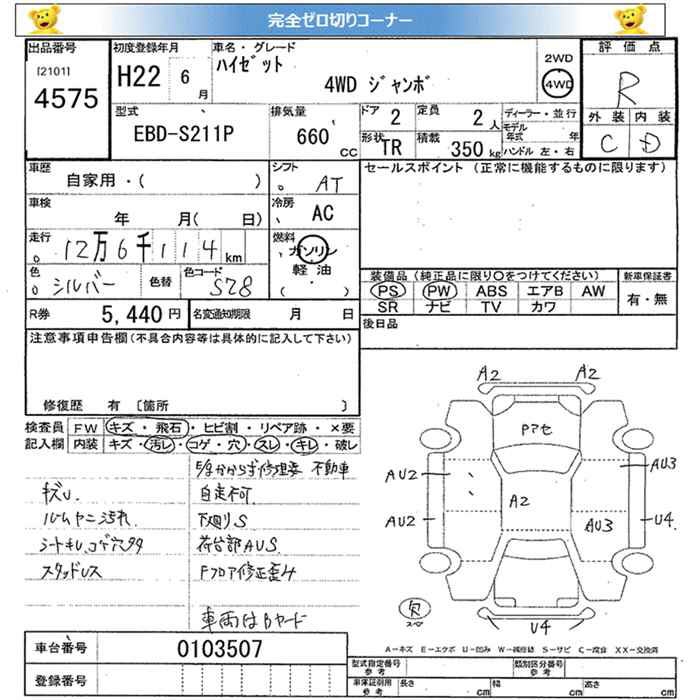 完全ゼロ切りコーナー
出品番号
[2101]
4575
初度登録年月
H22 6月
車名・グレード
ハイゼット
4WD ジャンボ
2WD
4WD
評価点
R
外装 内装
C D
型式
EBD-S211P
排気量
660 CC
ドア 2
定員 2人
形状 TR
積載 350 kg
ディーラー・並行
モデル年式 年
ハンドル 左・右
車歴
自家用・( )
シフト
AT
車検
年 月( 日)
冷房
AC
走行
12万6千114km
燃料
ガソリン
軽油
( ・ )
色
シルバー
色替
色コード
S28
R券 5,440円
名変通知期限 月 日
セールスポイント (正常に機能するものに限ります)
装備品 (純正品に限り○をつけてください)
新車保証書
PS PW ABS エアB AW
SR ナビ TV カワ
有・無
後日品
注意事項申告欄(不具合内容等は具体的に記入して下さい)
修復歴 有 〔箇所 〕
検査員記入欄
FW キズ・飛石・ヒビ割・リペア跡・×要
内装 キズ・汚レ・コゲ・穴・スレ・キレ・破レ
E/Gかからず修理要 不動車
キズU
自走不可
ルームヤニ汚れ
下廻りS
シートキレ、コゲ穴タタ
荷台部AUS
スタッドレス
Fフロア修正歪み
車両はBヤード
A2
A2
Pアセ
AU2
AU3
A2
AU2
AU3
U4
欠
スペ
U4
A-キズ E-エクボ U-凹み W-補修跡 S-サビ C-腐食 XX-交換済
車台番号
0103507
登録番号
型式指定番号
参考
類別区分番号
参考
車庫証明用
参考
長さ cm
幅 cm
高さ cm